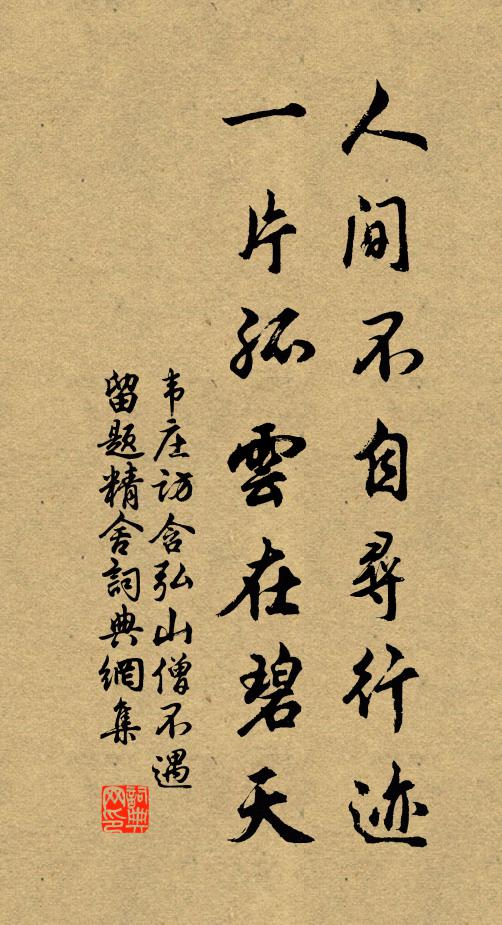 人間不自尋行迹
一片孤雲在碧天
韦庄访含弘山僧不遇
留题精舍詞典網集
詞典网印